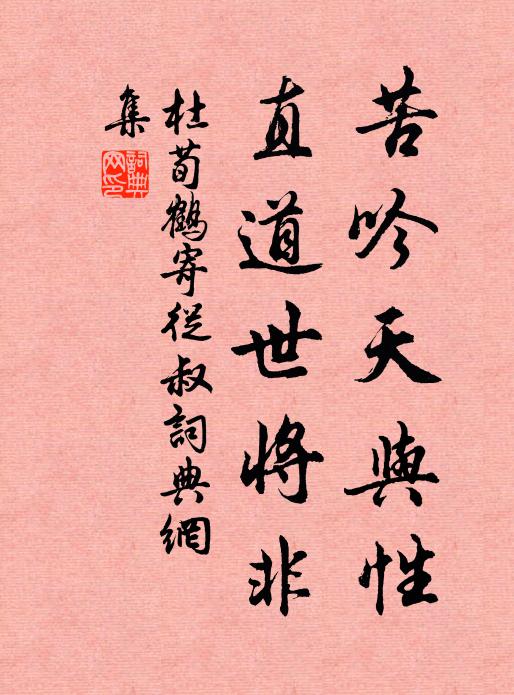 苦吟天與性
直道世將非
杜荀鶴寄從叔詞典網
集
詞典網印